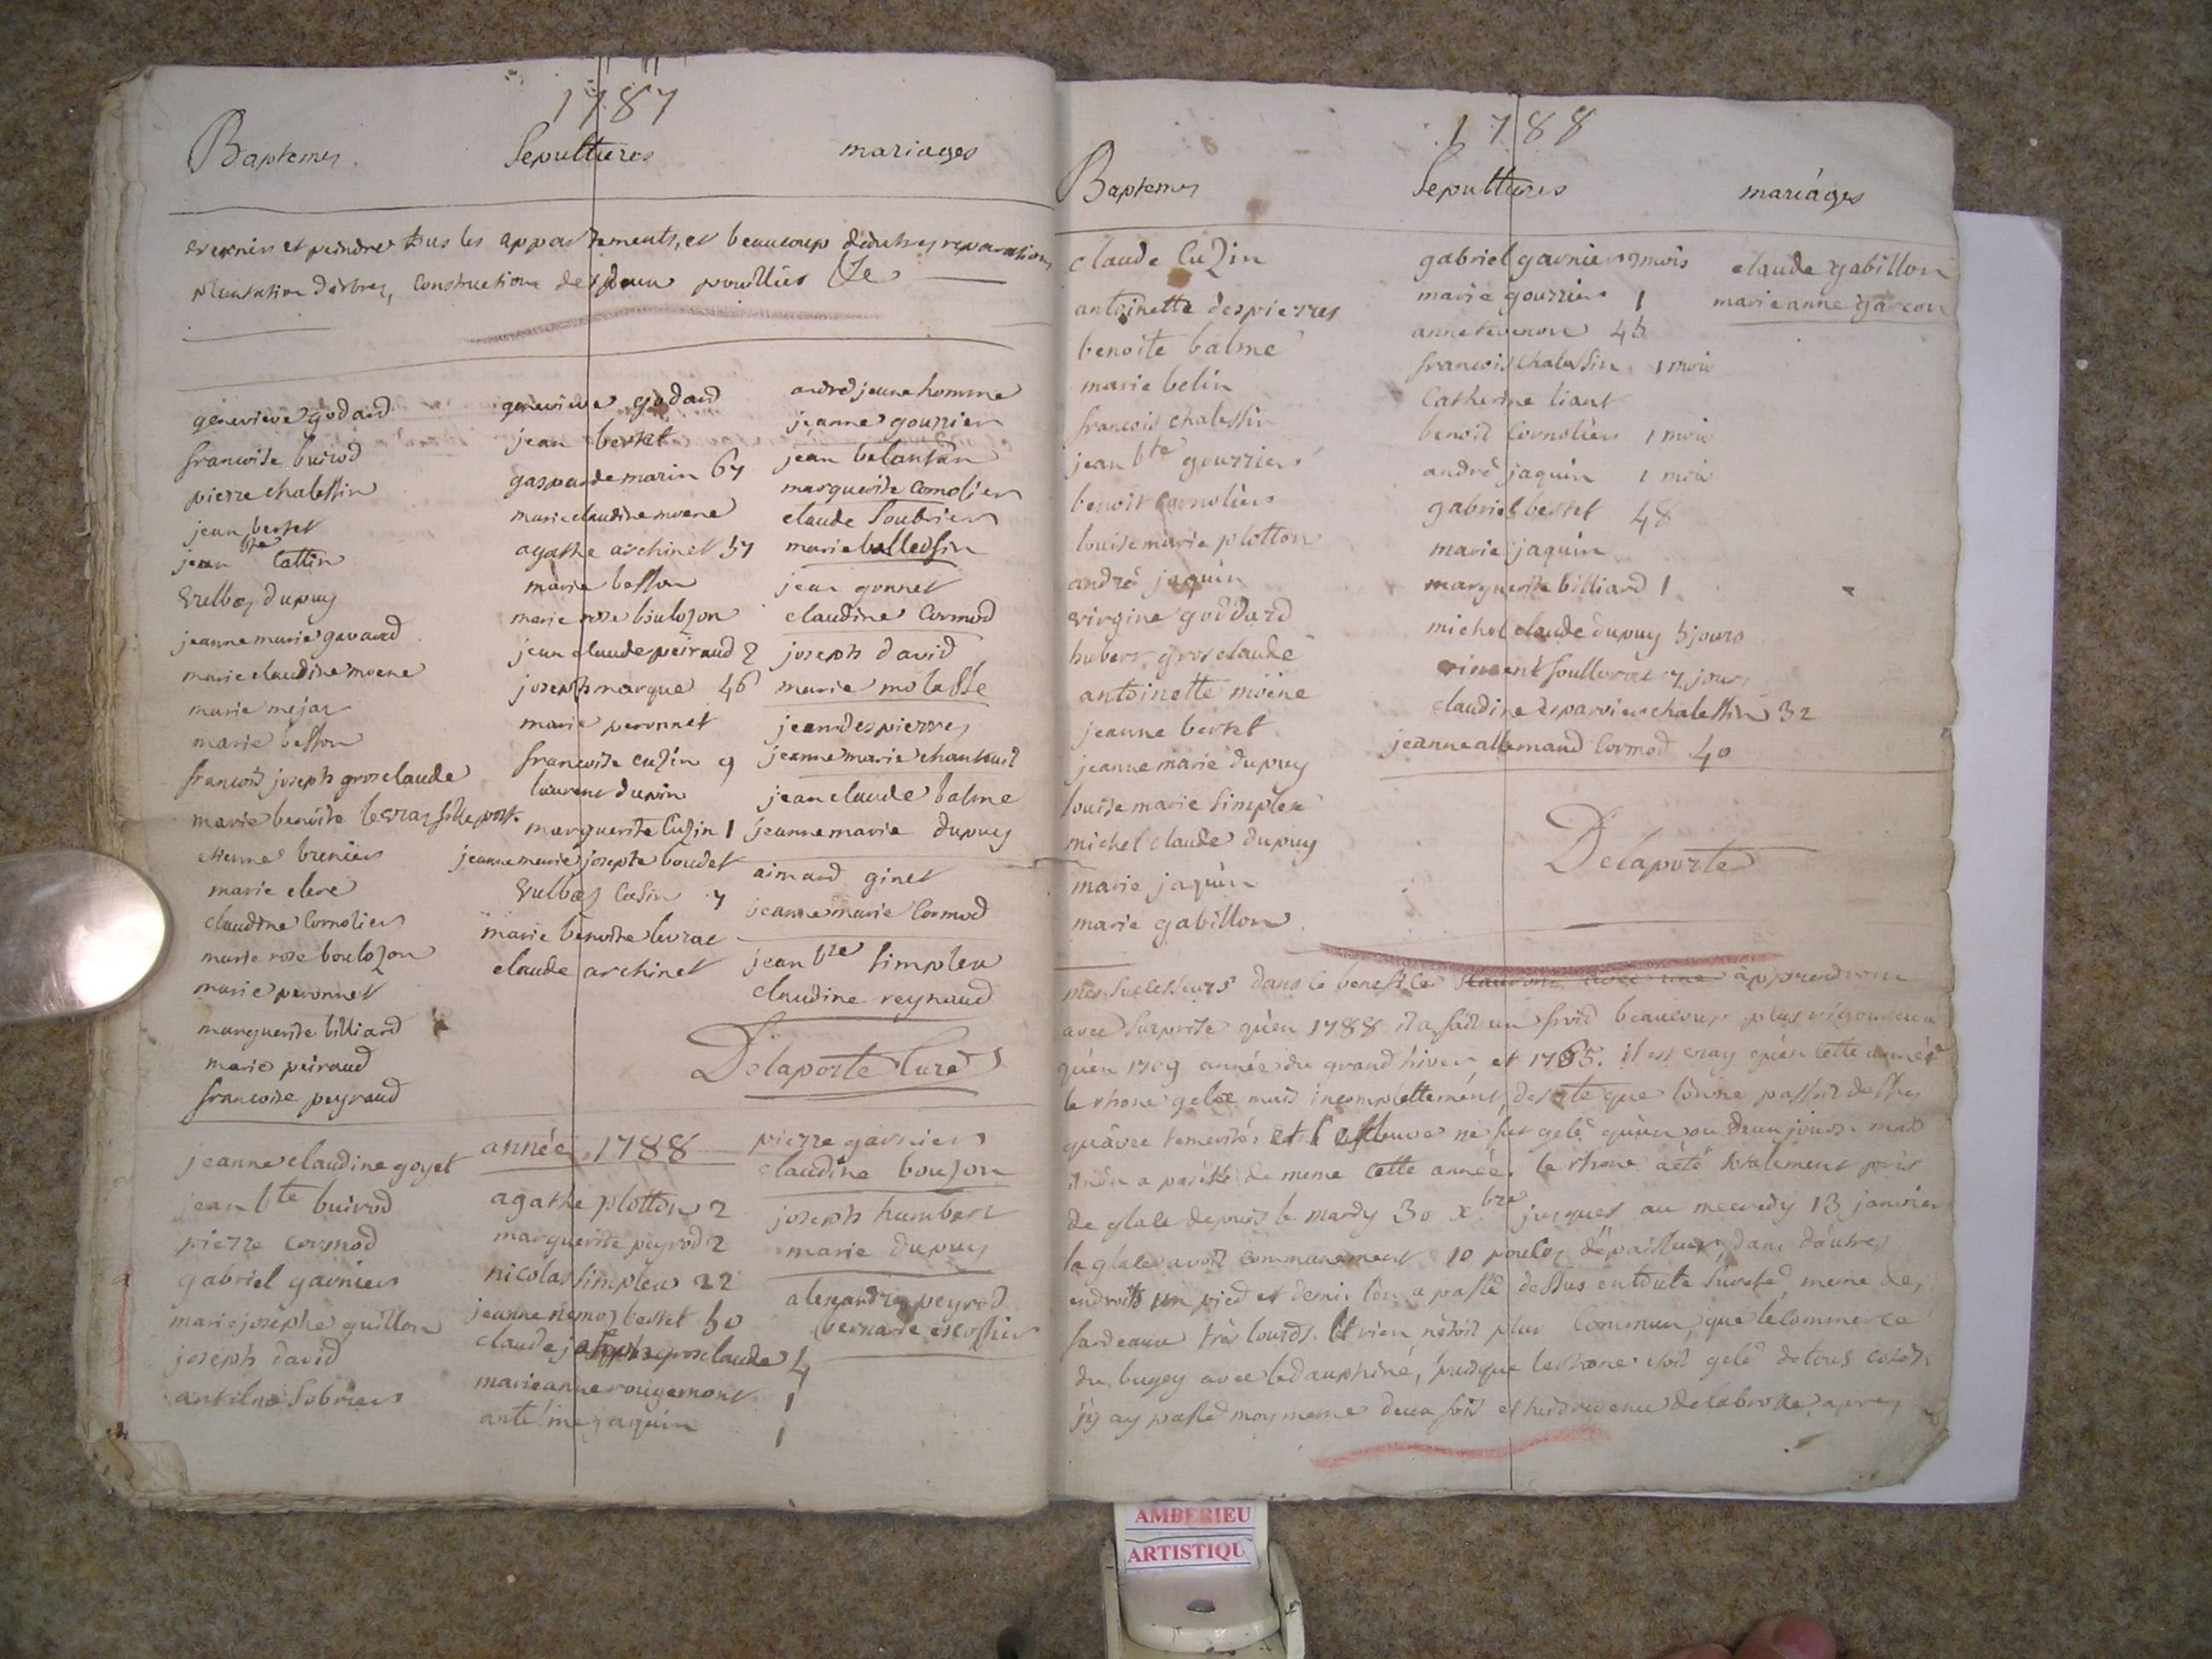 1787
Baptemes Sepultures mariages
et peindre tous les appartements, et beaucoup dautres reparations
plantation darbres, Construction des deux
genevieve godard
francoise buirod
pierre chalessin
jean bertet
jean bte Cattin
dupuy
jeanne marie gavand
marie claudine moene
marie mejar
marie besson
francois joseph grosclaude
marie benoite levrat
etienne brenier
marie clere
claudine Cornolier
marie rose boulozon
marie peronnet
marguerite billiard
marie peiraud
francoise peyraud
jeanne claudine goyet
jean bte buirod
pierre cormod
gabriel garnier
marie josephe guillon
joseph david
antelme Sobrier
genevieve godard
jean bertet
gasparde marin 67
marie claudine moene
agathe archinet 57
marie besson
marie rose boulozon
jean claude peiraud 2
joseph marque 46
marie peronnet
francoise cuzin 9
laurent dupin
marguerite Cuzin 1
jeanne marie josepte boudet
marie benoite levrat
claude archinet
année 1788
agathe plotton 2
marguerite peyrod 2
nicolas simplex 22
jeanne nemoz bertet 50
claude joseph grosclaude 4
marie anne rougemont 1
antelme jaquin 1
andré jeunehomme
jeanne gourrier
jean belantan
marguerite Cornolier
claude Soubrier
marie ballessin
jean gonnet
claudine Cormod
joseph david
marie molasse
jean despierres
jeanne marie chanteuil
jean claude balme
jeanne marie dupuy
aimard ginet
jeanne marie Cormod
jean bte simplex
claudine reynaud
Delaporte Curé
pierre garnier
claudine boujon
joseph humbert
marie dupuy
alexandre peyrod
bernarde escoffier
1788
Baptemes Sepultures mariáges
claude Cuzin
antoinette despierres
benoite balme
marie belin
francois chalessin
jean bte gourrier
benoit Cornolier
louise marie plotton
andré jaquin
virgine goddard
hubert grosclaude
antoinette moëne
jeanne bertet
jeanne marie dupuy
louise marie simplex
michel claude dupuy
marie jaquin
marie gabillon
gabriel garnier 9 mois
marie gourrier 1
anne tevenon 45
francois chalessin 1 mois
Catherine liant
benoit Cornolier 1 mois
andré jaquin 1 mois
gabriel bertet 48
marie jaquin
marguerite billiard 1
michel claude dupuy 5 jours
vincent 7 jours
claudine desparvier chalessin 32
jeanne allemand Cormod 40
claude gabillon
marie anne garcon
Delaporte
mes successeurs dans le benefice apprendront
avec surprise qu'en 1788 il a fait un froid beaucoup plus rigoureux
qu'en 1709 année du grand hiver, et 1765. il est vray qu'en cette année
le rhone gela mais incomplettement, de sorte que l'on ne passoit dessus
qu'avec temerité et le fleuve ne fut gelé qu'un ou deux jours. mais
il n'en a pas été de meme cette année. le rhone a été totalement pris
de glace depuis le mardy 30 xbre jusques au mecredy 13 janvier
la glace avoit communement 10 pouces d'épaisseur, dans d'autres
endroits un pied et demi. l'on a passé dessus en toute sureté, meme des
fardeaux très lourds. et rien n'etoit plus Commun, que le commerce
du bugey avec le dauphiné, puisque le rhone etoit gelé de tous cotés.
j'y ay passé moy meme deux fois et suis revenu de la brosse apres
AMBERIEU
ARTISTIQU